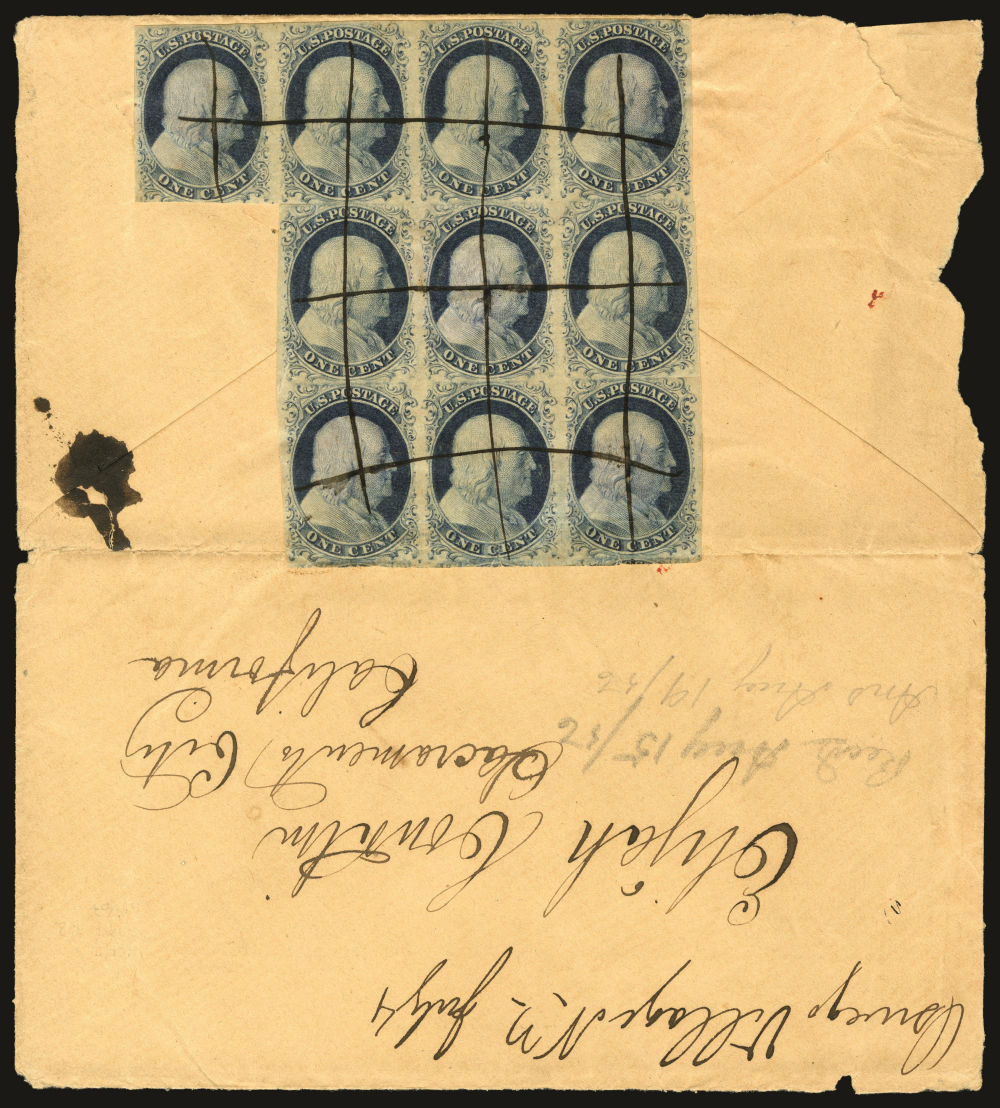 U.S.POSTAGE U.S.POSTAGE U.S.POSTAGE U.S.POSTAGE
ONE CENT ONE CENT ONE CENT ONE CENT
U.S.POSTAGE U.S.POSTAGE U.S.POSTAGE
ONE CENT ONE CENT ONE CENT
U.S.POSTAGE U.S.POSTAGE U.S.POSTAGE
ONE CENT ONE CENT ONE CENT
Oswego Village N.Y. July 4
Elijah
Sacramento City
California
Recd Aug 15/56
Ans Aug 19/56